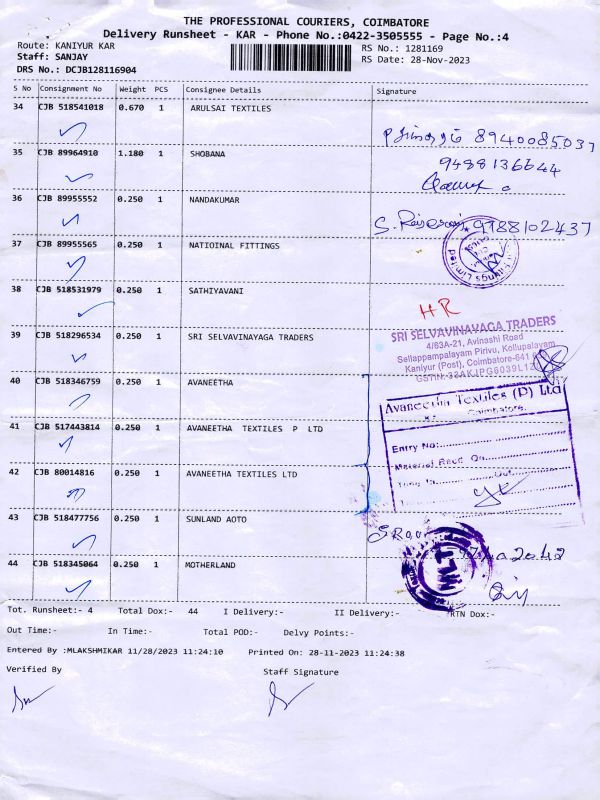 THE PROFESSIONAL COURIERS, COIMBATORE
Delivery Runsheet - KAR - Phone No.:0422-3505555 - Page No.:4
Route: KANIYUR KAR
RS No.: 1281169
Staff: SANJAY
RS Date: 28-Nov-2023
DRS No.: DCJB128116904
S No Consignment No Weight PCS Consignee Details Signature
34 CJB 518541018 0.670 1 ARULSAI TEXTILES
8940085037
35 CJB 89964910 1.180 1 SHOBANA
9488136644
36 CJB 89955552 0.250 1 NANDAKUMAR
9788102437
37 CJB 89955565 0.250 1 NATIOINAL FITTINGS
38 CJB 518531979 0.250 1 SATHIYAVANI
HR
39 CJB 518296534 0.250 1 SRI SELVAVINAYAGA TRADERS
SRI SELVAVINAYAGA TRADERS
4/63A-21, Avinashi Road
Sellappampalayam Pirivu, Kollupalayam
Kaniyur (Post), Coimbatore-641
40 CJB 518346759 0.250 1 AVANEETHA
Avaneetha Textiles (P) Ltd
Coimbatore.
41 CJB 517443814 0.250 1 AVANEETHA TEXTILES P LTD
Entry No:
Material Recd On
42 CJB 80014816 0.250 1 AVANEETHA TEXTILES LTD
Time In Out
43 CJB 518477756 0.250 1 SUNLAND AOTO
44 CJB 518345064 0.250 1 MOTHERLAND
Tot. Runsheet:- 4 Total Dox:- 44 I Delivery:- II Delivery:- RTN Dox:-
Out Time:- In Time:- Total POD:- Delvy Points:-
Entered By :MLAKSHMIKAR 11/28/2023 11:24:10 Printed On: 28-11-2023 11:24:38
Verified By Staff Signature